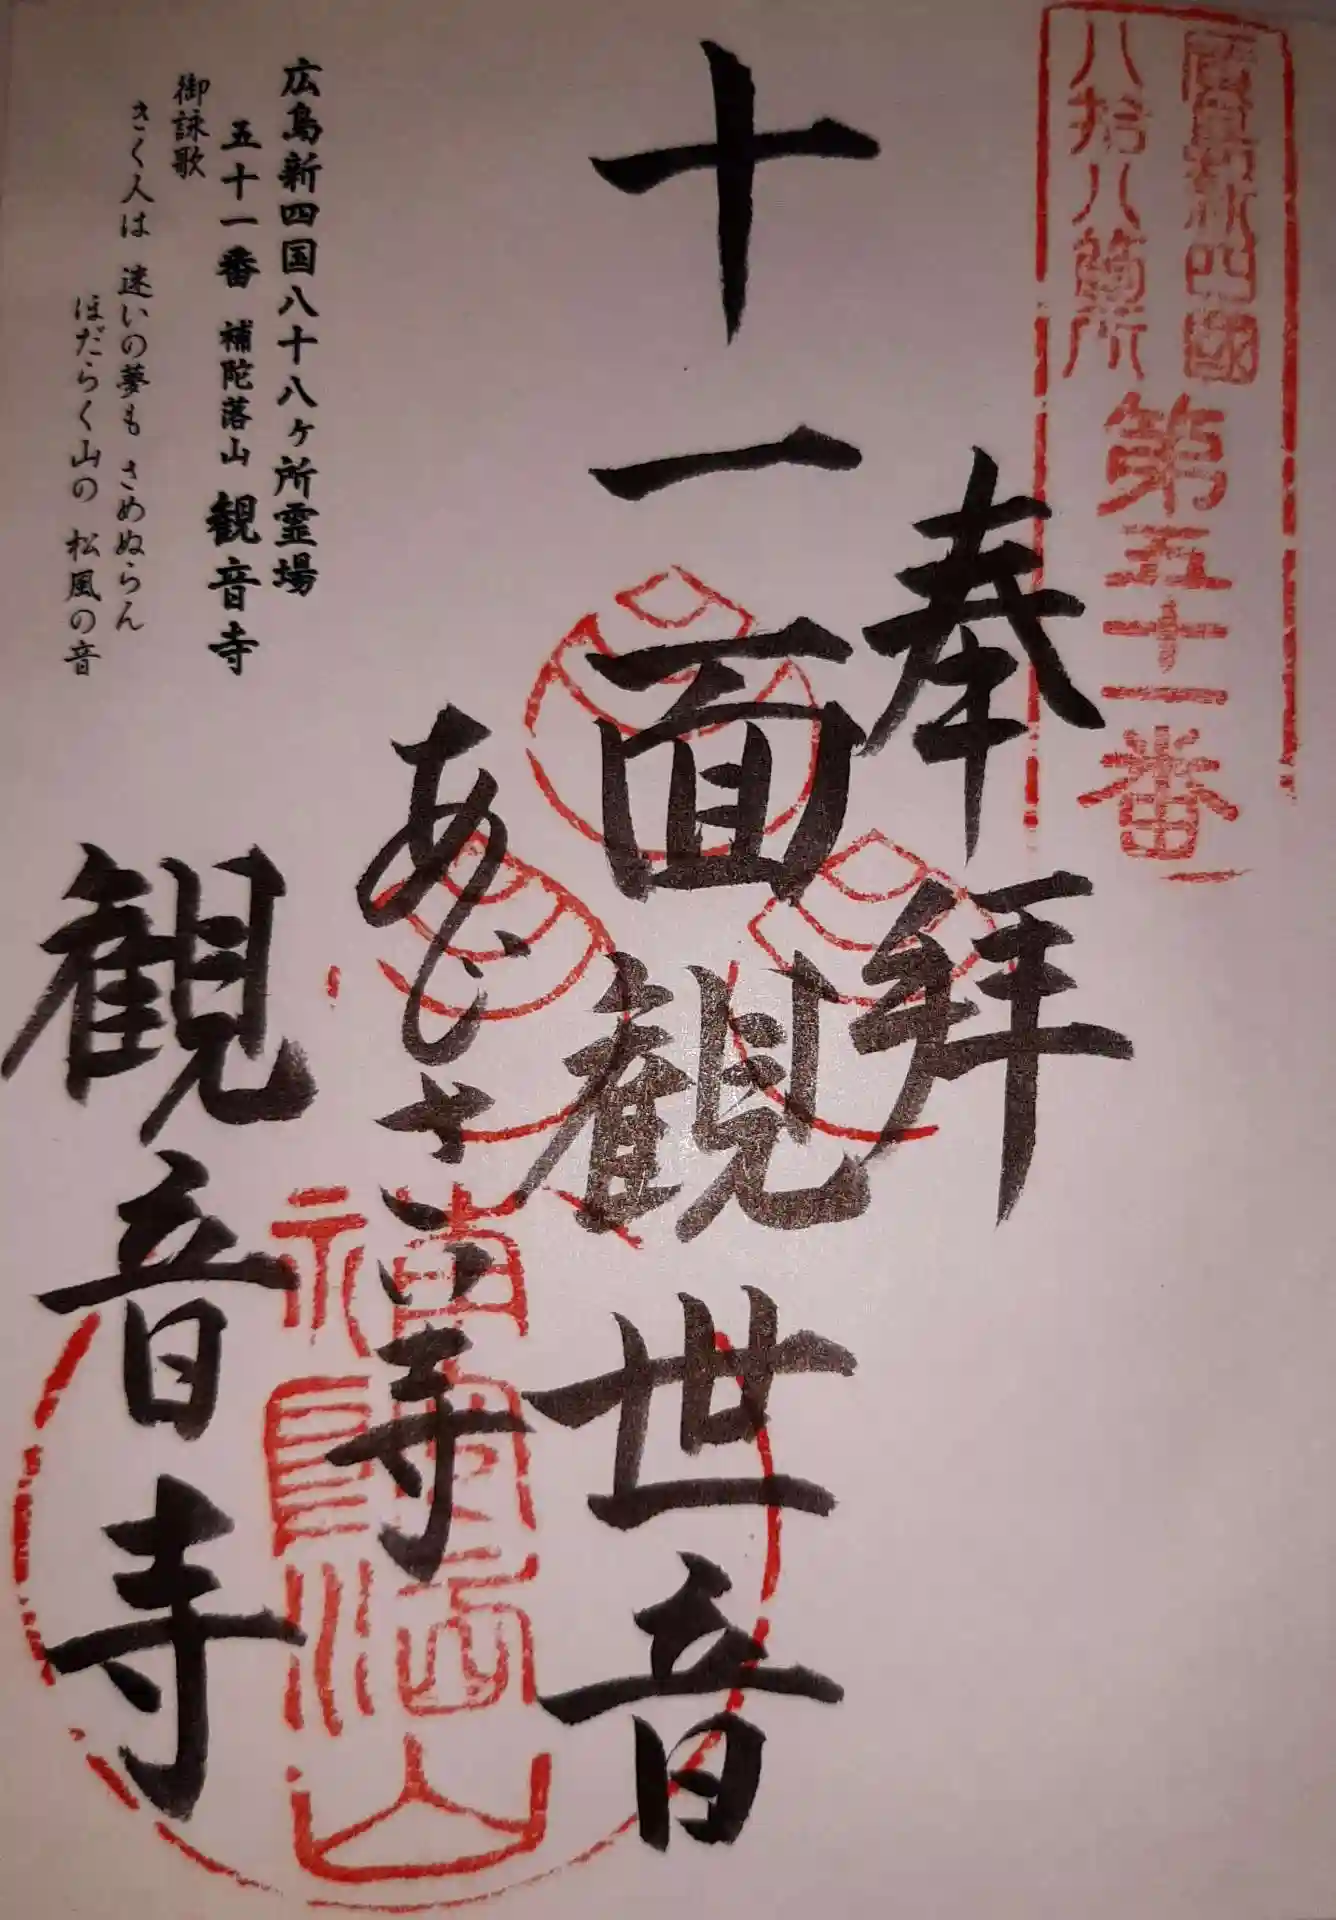 廣島新四國
八拾八箇所
第五十一番
奉拝
十一面観世音
あじさい寺
観音寺
補陀落山
広島新四国八十八ヶ所霊場
五十一番 補陀落山 観音寺
御詠歌
きく人は 迷いの夢も さめぬらん
ほだらく山の 松風の音